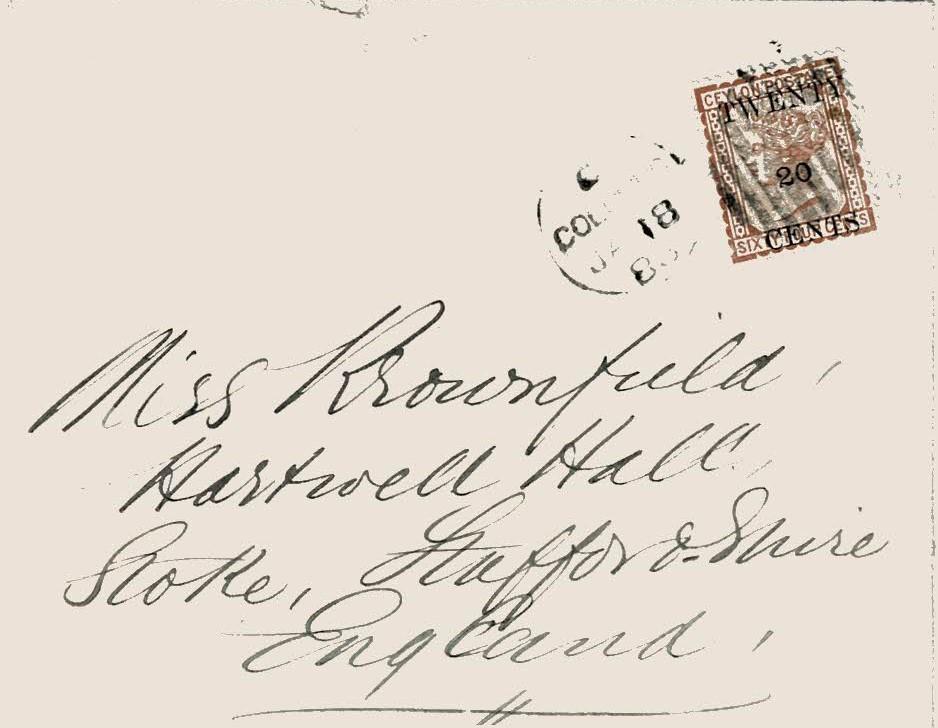 CEYLON POSTAGE
TWENTY
20
CENTS
JA 18
Miss Brownfield,
Hartwell Hall,
Stoke, Stafford-Shire
England,